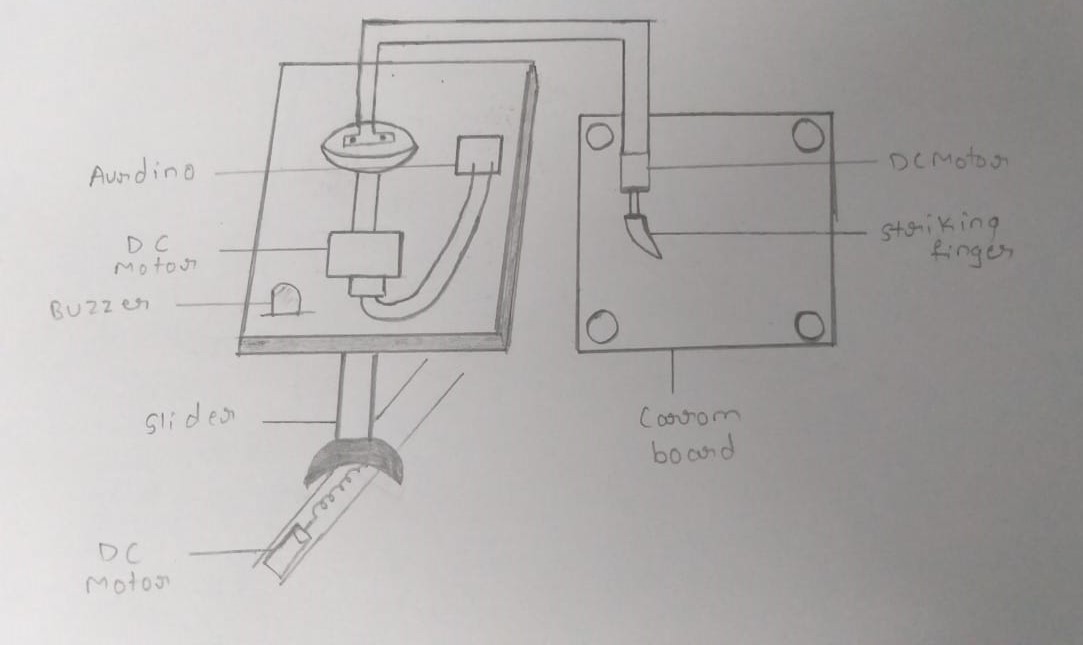 Aurdino
DC
Motor
Buzzer
Slider
DC
Motor
DC Motor
Striking
finger
Carrom
board